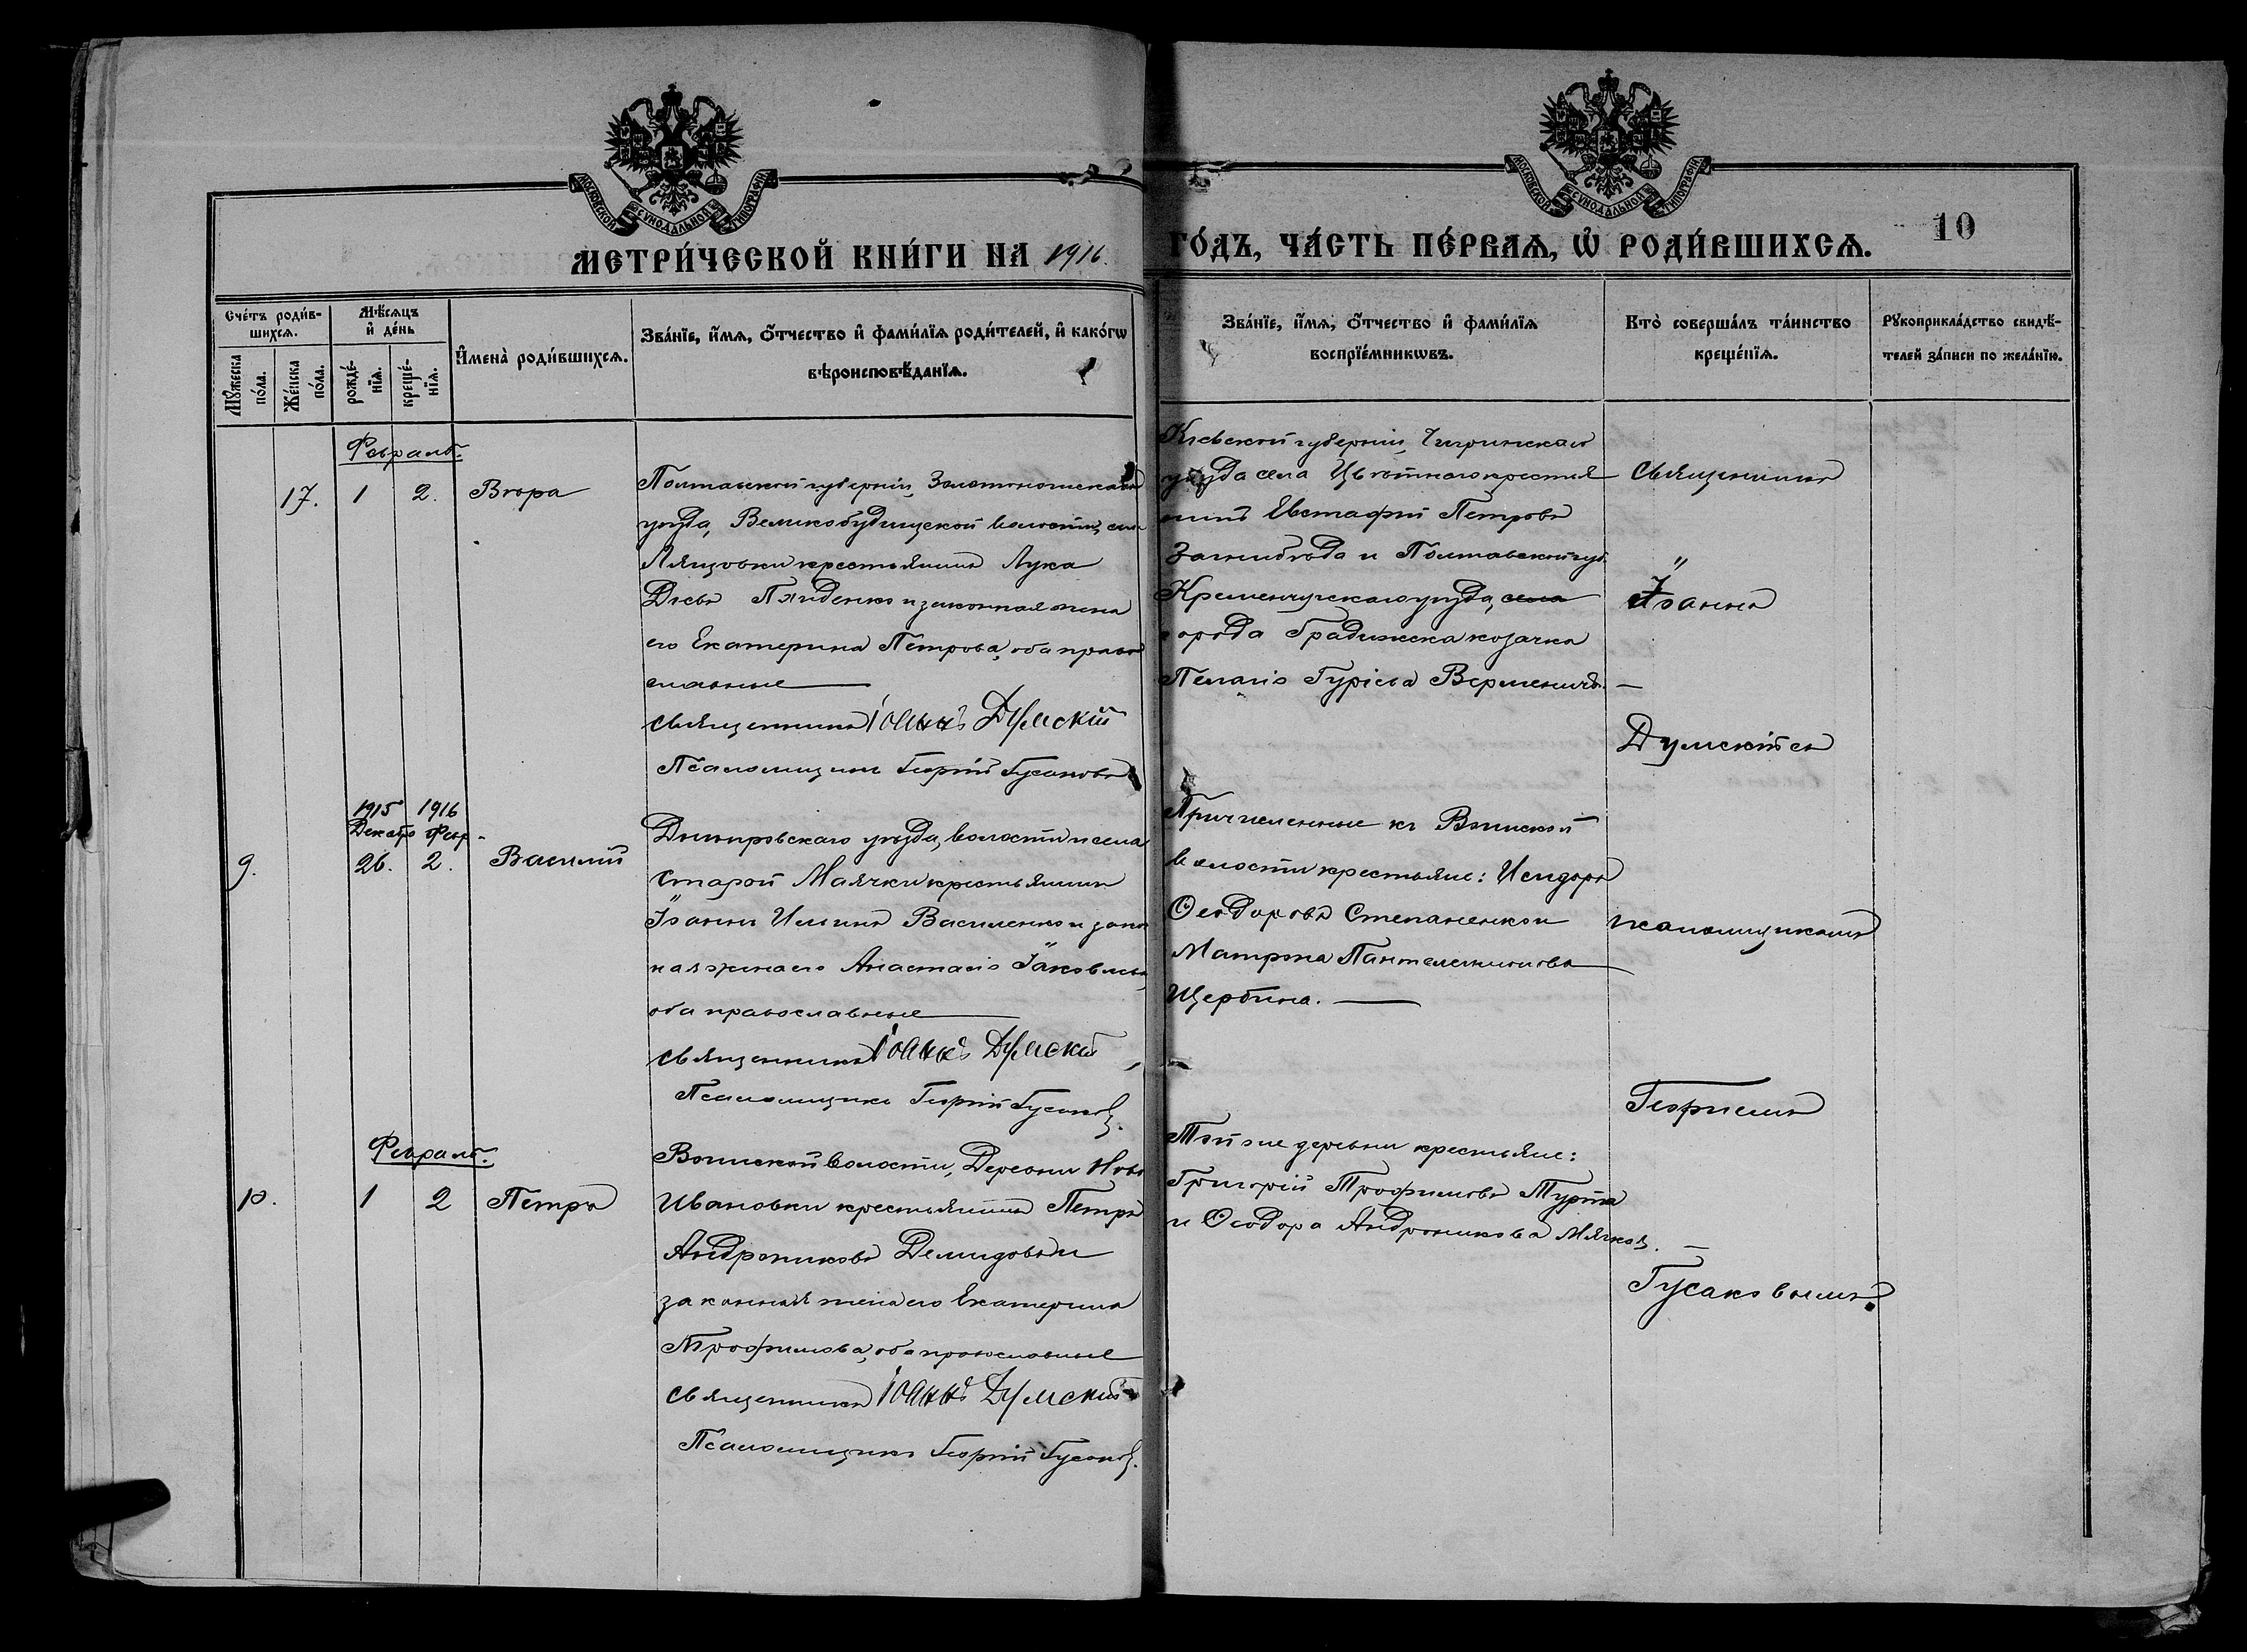 МОСКОВСКОЙ СѴНОДАЛЬНОЙ ТИПОГРАФІИ
МОСКОВСКОЙ СѴНОДАЛЬНОЙ ТИПОГРАФІИ
МЕТРИ́ЧЕСКОЙ КНИ́ГИ НА 1916. ГО́ДЪ, ЧА́СТЬ ПЕ́РВАѦ, Ѿ РОДИ́ВШИХСѦ. 10
Сче́тъ роди́в-
шихсѧ.
Мꙋжеска по́ла.
Же́нска по́ла.
Мѣ́сѧцъ
и҆ де́нь
рожде́-нїѧ.
креще́-нїѧ.
И҆мена̀ роди́вшихсѧ.
Зва́нїе, и҆́мѧ, ѻ҆́тчество и҆ фами́лїѧ роди́телей, и҆ како́гѡ
вѣроисповѣ́данїѧ.
Зва́нїе, и҆́мѧ, ѻ҆́тчество и҆ фами́лїѧ
воспрїе́мникѡвъ.
Кто̀ соверша́лъ та́инство
креще́нїѧ.
Рꙋкоприкла́дство свидѣ́-
телей за́писи по жела́нїю.
Февраль.
17. 1 2. Вѣра
Полтавской губерніи, Золотоношскаго
уѣзда, Великобудищской волости, села
Ляцовки крестьянинъ Лука
Діевъ и законная жена
его Екатерина Петрова, оба право
славные
Священникъ Іоаннъ Думскій
Псаломщикъ Георгій Гусаковъ
Кіевской губерніи, Чигиринскаго
уѣзда села Цвѣтнаго крестья
нинъ Евстафій Петровъ
Загнибѣда и Полтавской губ.
Кременчугскаго уѣзда, села
города Градижска козачка
Пелагія Гуріева
Священникъ
Іоаннъ
Думскій съ
1915 1916
Декабр Февр-
9. 26. 2. Василій
Днѣпровскаго уѣзда, волости и села
Старой Маячки крестьянинъ
Іоаннъ Ильинъ Василенко и закон
ная жена его Анастасія Іаковлева,
оба православные
Священникъ Іоаннъ Думскій
Псаломщикъ Георгій Гусаковъ.
Причисленные къ Воинской
волости крестьяне: Исидоръ
Ѳеодоровъ Степаненко и
Матрона Пантелеимонова
Щербина.
псаломщикомъ
Георгіемъ
Февраль.
10. 1 2 Петръ
Воинской волости, Деревни Ново
Ивановки крестьянинъ Петръ
Андрониковъ Демидовъ и
законная жена его Екатерина
Трофимова, оба православные
Священникъ Іоаннъ Думскій
Псаломщикъ Георгій Гусаковъ.
Той же деревни крестьяне:
Григорій Трофимовъ
и Ѳеодора Андроникова
Гусаковымъ.